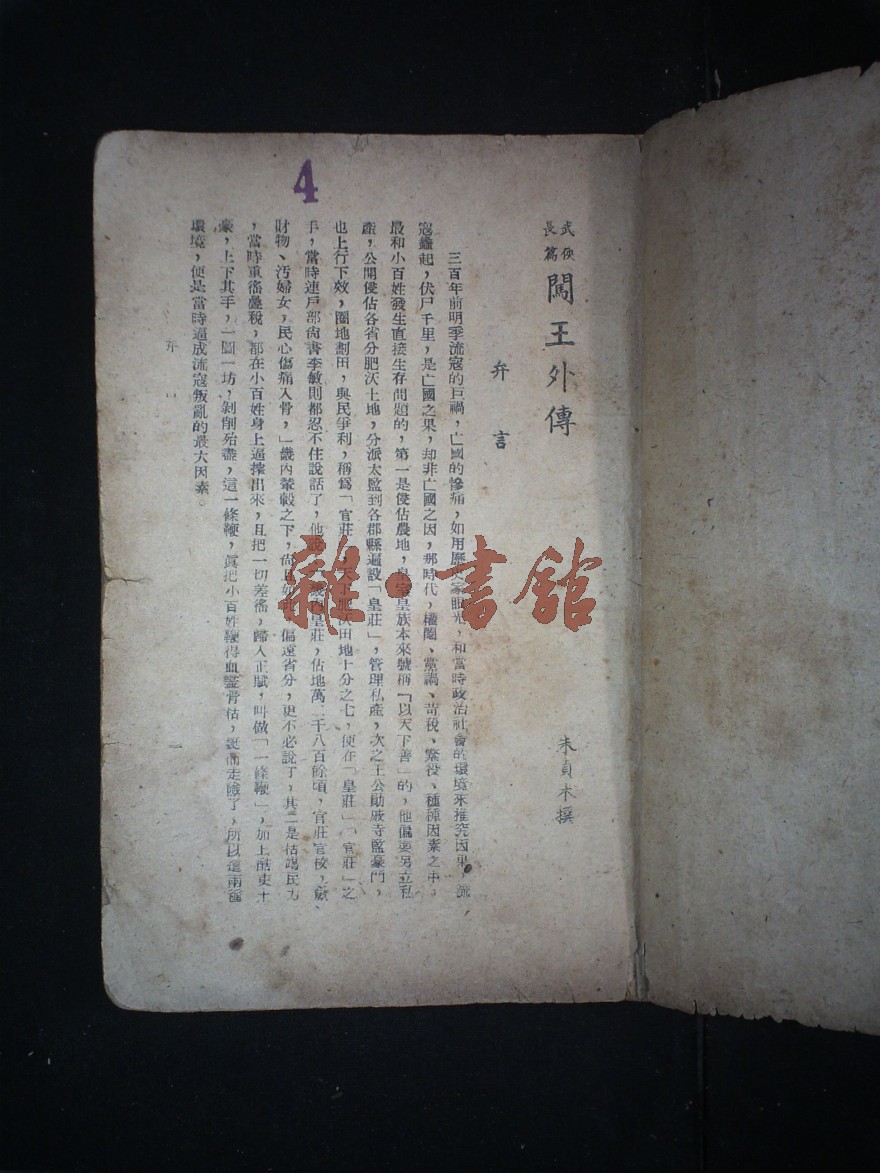 武俠
長篇
闖王外傳
朱貞木撰
弁言
三百年前明季流寇的巨禍，亡國的慘痛，如用歷史家眼光，和當時政治社會的環境來推究因果，流
寇蠭起，伏尸千里，是亡國之果，却非亡國之因，那時代，權閹、黨禍、苛稅、繁役、種種因素之中，
最和小百姓發生直接生存問題的，第一是侵佔農地，皇室皇族本來號稱「以天下善」的，他偏要另立私
產，公開侵佔各省分肥沃土地，分派太監到各郡縣遍設「皇莊」，管理私產，次之王公勛戚寺監豪門，
也上行下效，圈地劃田，與民爭利，稱爲「官莊」，天下肥沃田地十分之七，便在「皇莊」「官莊」之
手，當時連戶部尚書李敏則都忍不住說話了，他說：「畿內皇莊，佔地萬二千八百餘頃，官莊官校，
財物、汚婦女，民心傷痛入骨，」畿內輦轂之下，尚且如此，偏遠省分，更不必說了，其二是枯竭民力
，當時重徭疊稅，都在小百姓身上逼搾出來，且把一切差徭，歸入正賦，叫做「一條鞭」，加上酷吏土
豪，上下其手，一圖一坊，剝削殆盡，這一條鞭，眞把小百姓鞭得血盡骨枯，鋌而走險了，所以這兩種
環境，便是當時逼成流寇叛亂的最大因素。
弁
一
4
雜·書館